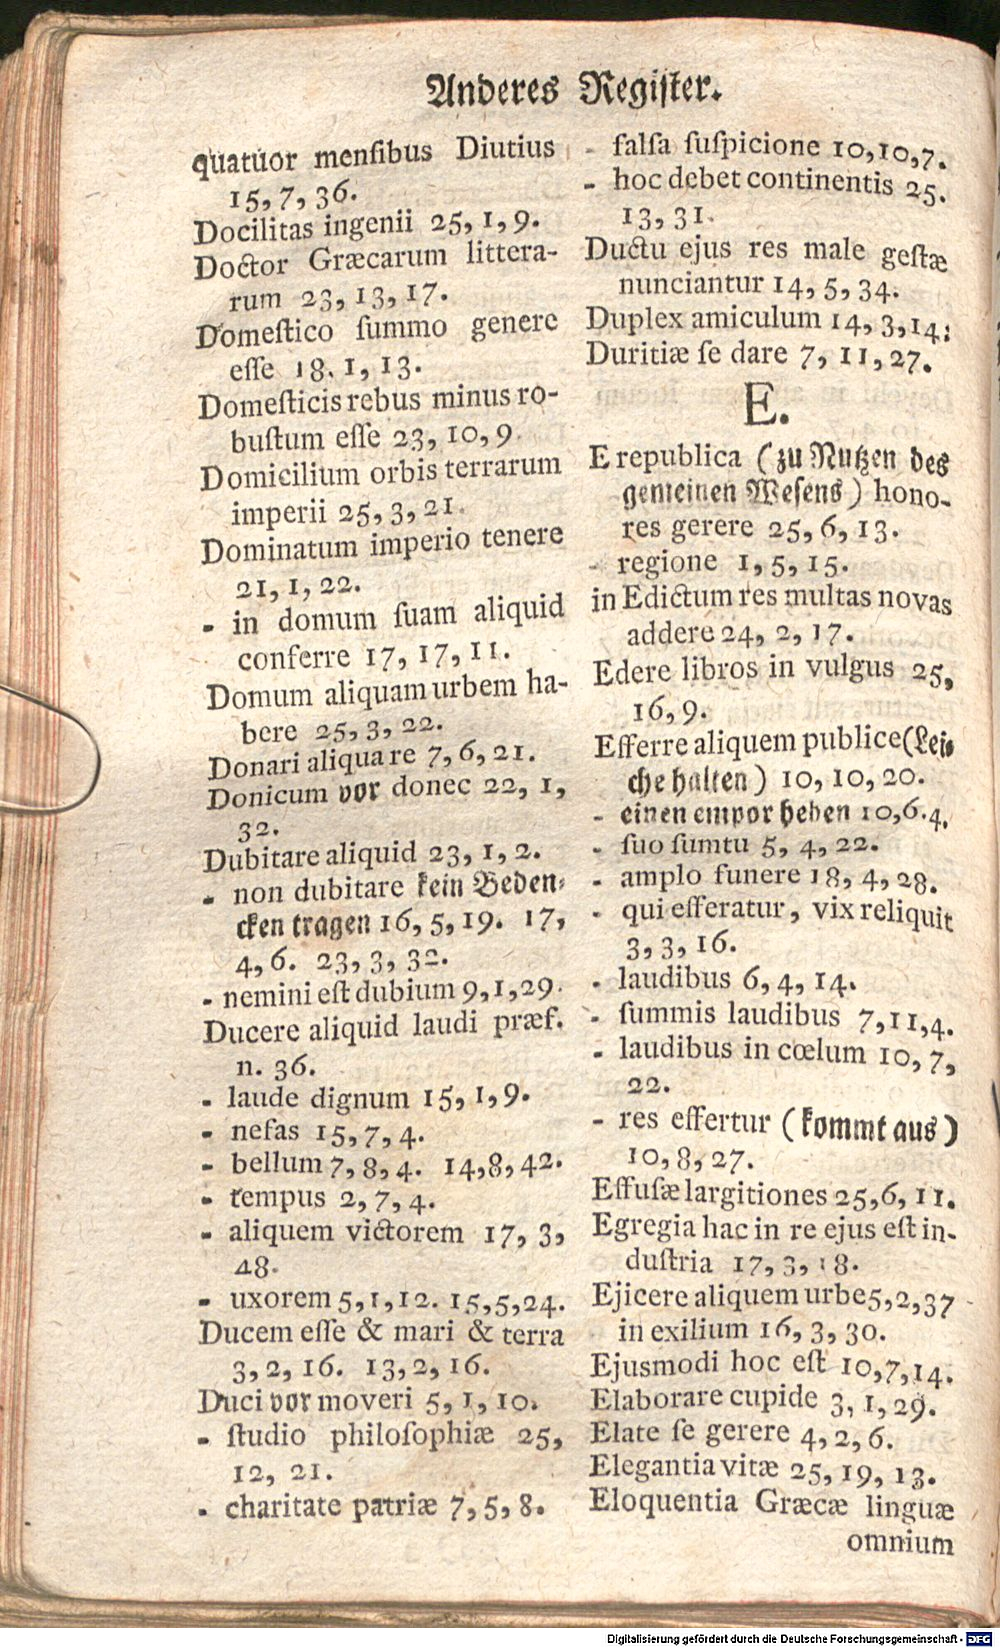 Anderes Register.
quatuor mensibus Diutius
15, 7, 36.
Docilitas ingenii 25, 1, 9.
Doctor Græcarum littera-
rum 23, 13, 17.
Domestico summo genere
esse 18. 1, 13.
Domesticis rebus minus ro-
bustum esse 23, 10, 9
Domicilium orbis terrarum
imperii 25, 3, 21.
Dominatum imperio tenere
21, 1, 22.
- in domum suam aliquid
conferre 17, 17, 11.
Domum aliquam urbem ha-
bere 25, 3, 22.
Donari aliqua re 7, 6, 21.
Donicum vor donec 22, 1,
32.
Dubitare aliquid 23, 1, 2.
- non dubitare kein Beden-
cken tragen 16, 5, 19. 17,
4, 6. 23, 3, 32.
- nemini est dubium 9, 1, 29.
Ducere aliquid laudi præf.
n. 36.
- laude dignum 15, 1, 9.
- nefas 15, 7, 4.
- bellum 7, 8, 4. 14, 8, 42.
- tempus 2, 7, 4.
- aliquem victorem 17, 3,
48.
- uxorem 5, 1, 12. 15, 5, 24.
Ducem esse & mari & terra
3, 2, 16. 13, 2, 16.
Duci vor moveri 5, 1, 10.
- studio philosophiæ 25,
12, 21.
- charitate patriæ 7, 5, 8.
- falsa suspicione 10, 10, 7.
- hoc debet continentis 25.
13, 31.
Ductu ejus res male gestæ
nunciantur 14, 5, 34.
Duplex amiculum 14, 3, 14:
Duritiæ se dare 7, 11, 27.
E.
E republica (zu Nutzen des
gemeinen Wesens) hono-
res gerere 25, 6, 13.
- regione 1, 5, 15.
in Edictum res multas novas
addere 24, 2, 17.
Edere libros in vulgus 25,
16, 9.
Efferre aliquem publice (Lei-
che halten) 10, 10, 20.
- einen empor heben 10, 6. 4.
- suo sumtu 5, 4, 22.
- amplo funere 18, 4, 28.
- qui efferatur, vix reliquit
3, 3, 16.
- laudibus 6, 4, 14.
- summis laudibus 7, 11, 4.
- laudibus in cœlum 10, 7,
22.
- res effertur (kommt aus)
10, 8, 27.
Effusæ largitiones 25, 6, 11.
Egregia hac in re ejus est in-
dustria 17, 3, 18.
Ejicere aliquem urbe 5, 2, 37
- in exilium 16, 3, 30.
Ejusmodi hoc est 10, 7, 14.
Elaborare cupide 3, 1, 29.
Elate se gerere 4, 2, 6.
Elegantia vitæ 25, 19, 13.
Eloquentia Græcæ linguæ
omnium
Digitalisierung gefördert durch die Deutsche Forschungsgemeinschaft - DFG